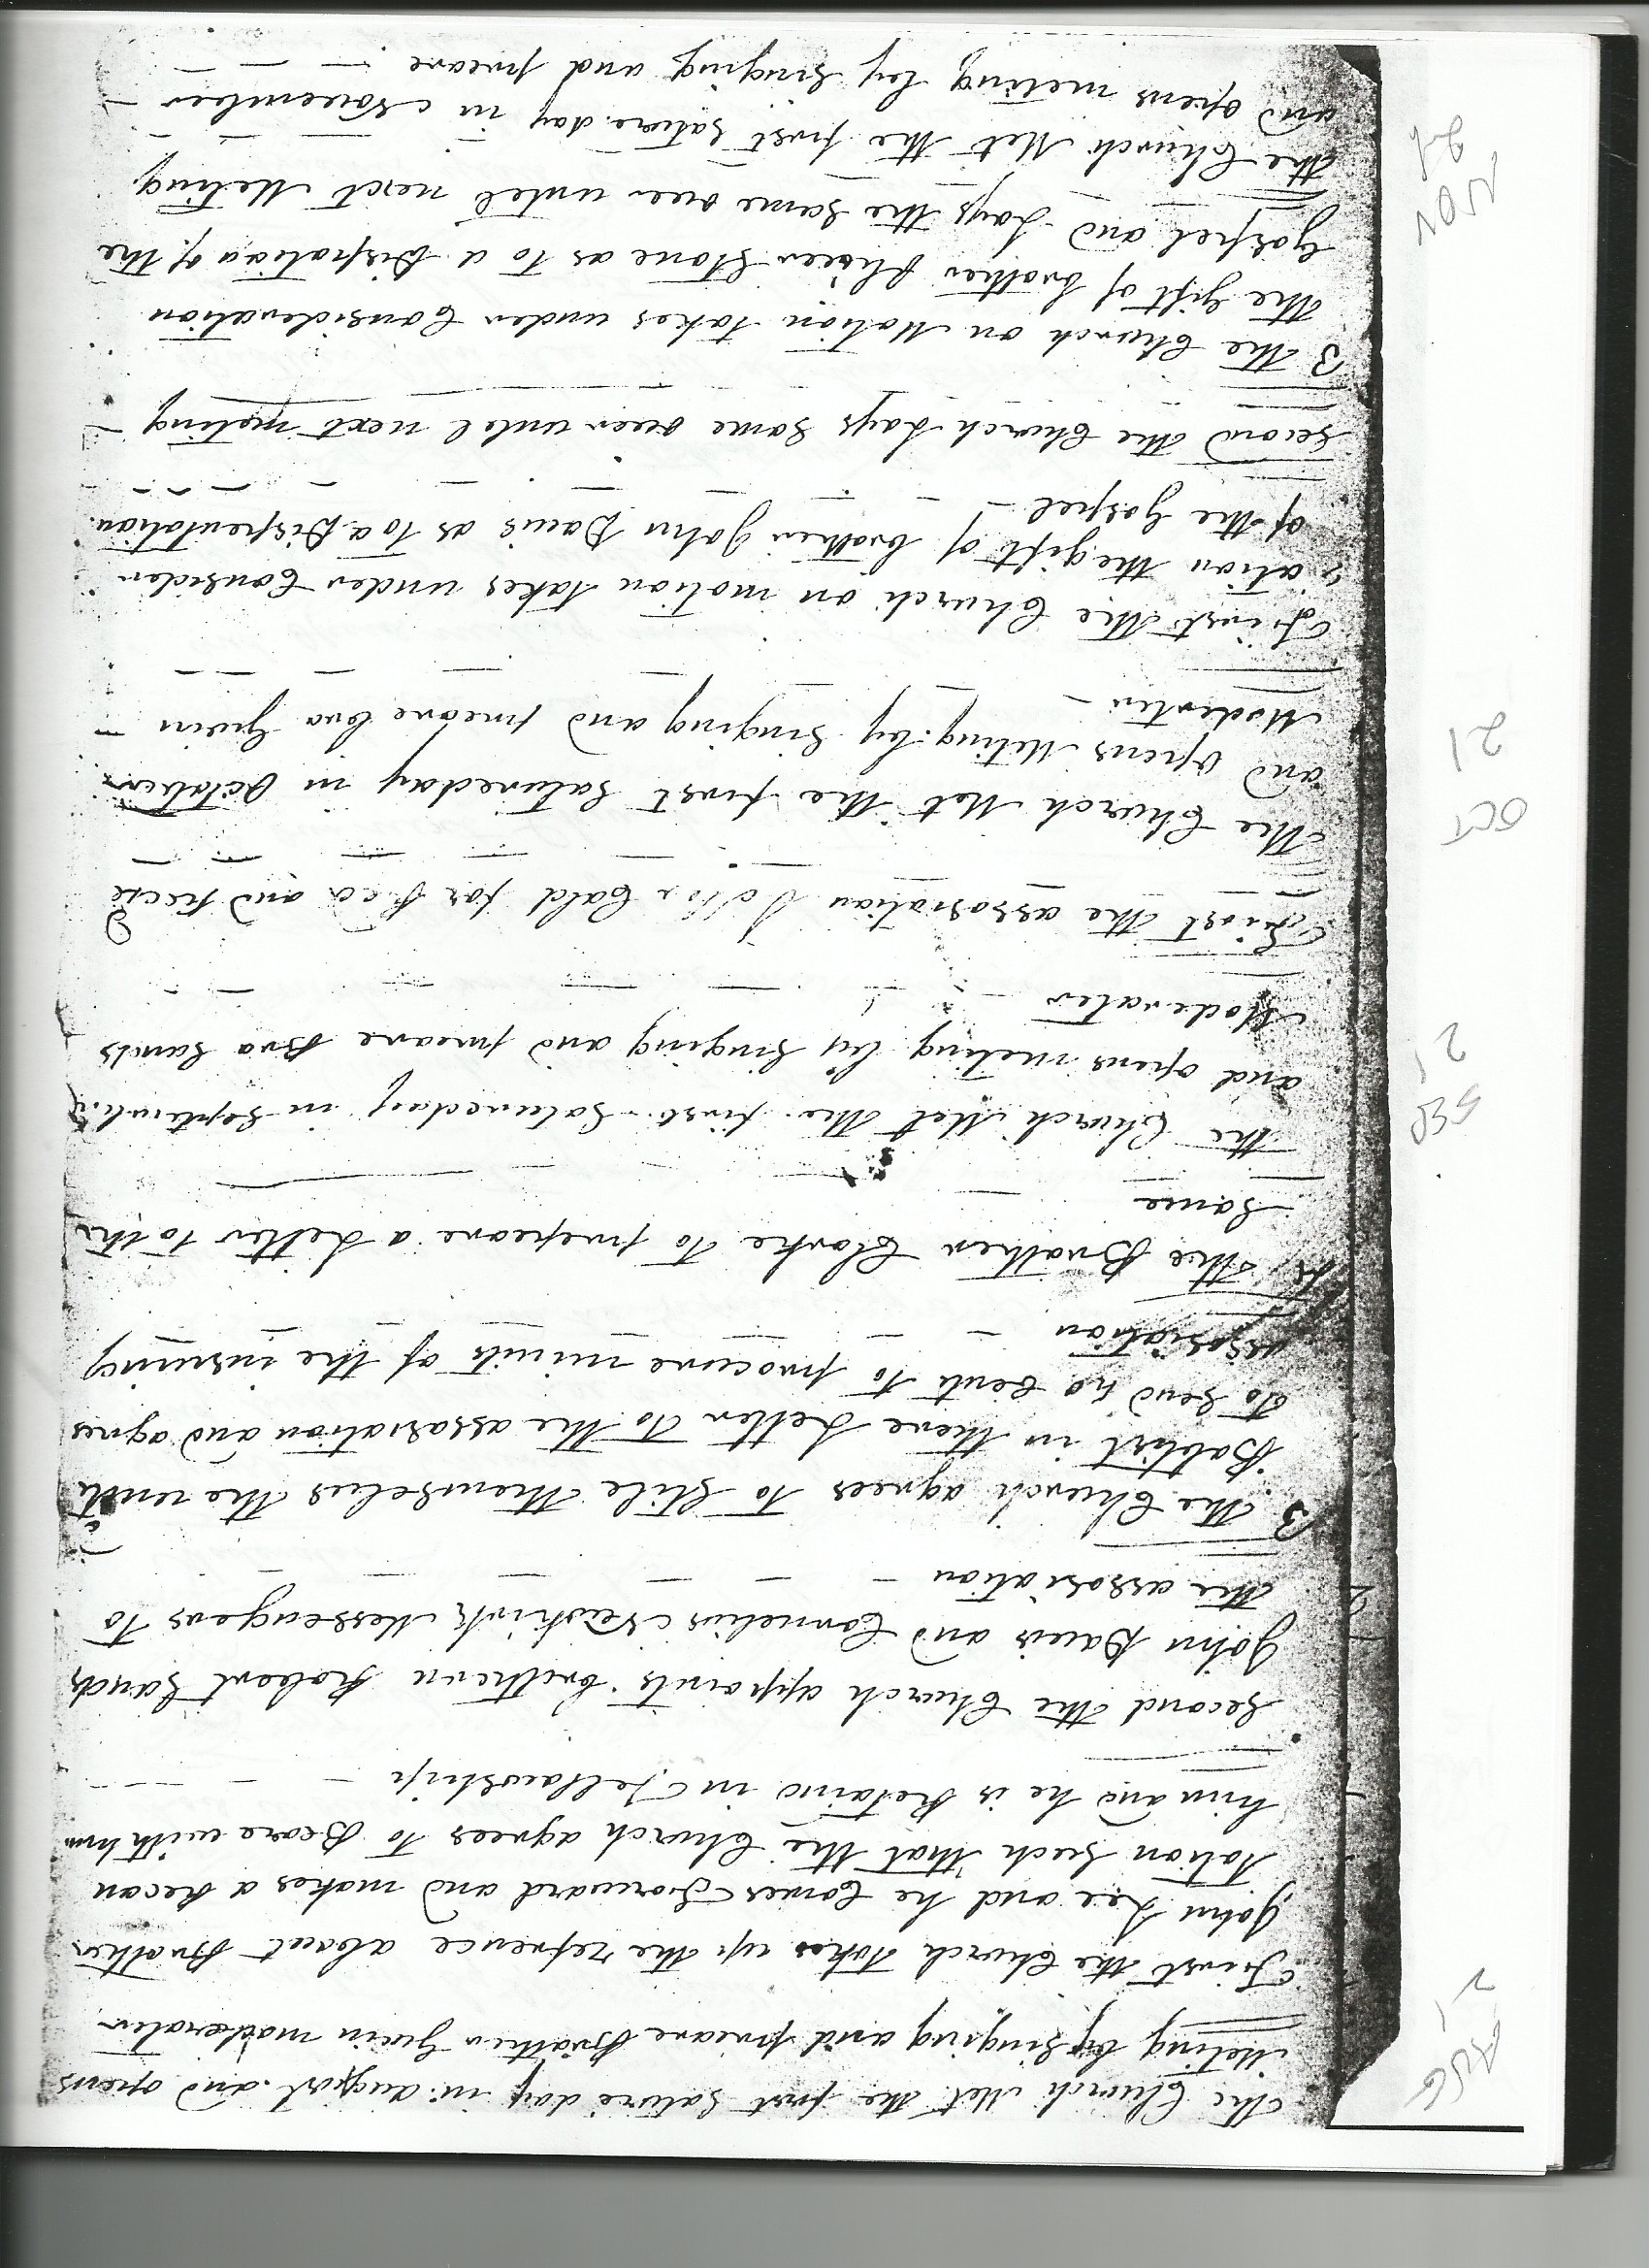 AUG
21
The Church Met the first Saturday in august and opens
Meting by Singing and preare Brother Guin moderater
First the Church takes up the refrence about Brother
John Lee and he Comes Forward and makes a Recan
tation Such that the Church agrees to Beare with him
him and he is Retaind in Fellowship
Second the Church appoints brethern Robert Sands
John Davis and Cornelius Messengers to
the assosiation
3 the Church agrees to Stile themselves the
Babtist in there Letter to the assosiation and agrees
to Send no Cents to procure minits of the insuing
assosiation
4 the Brother Clarke to prepeare a Letter to the
Same
SEP
21
the Church Met the first Saturday in September
and opens meting by Singing and preare Bro Sands
Moderater
First the assosiation Letter Cald for Red and
OCT
21
The Church Met the first Saturday in October
and Opens Meting by Singing and preare bro Guin
Moderter
First the Church on motion takes under Consider
ation the gift of brother John Davis as to a Dispentation
of the Gospel
Second the Church Lays Same over untel next meting
3 the Church on Motion takes under Consideration
the gift of brother Stone as to a Dispration of the
Gospel and Lays the Same over untel next Meting
NOV
21
the Church Met the first Saturday in November
and opens meting by Singing and preare